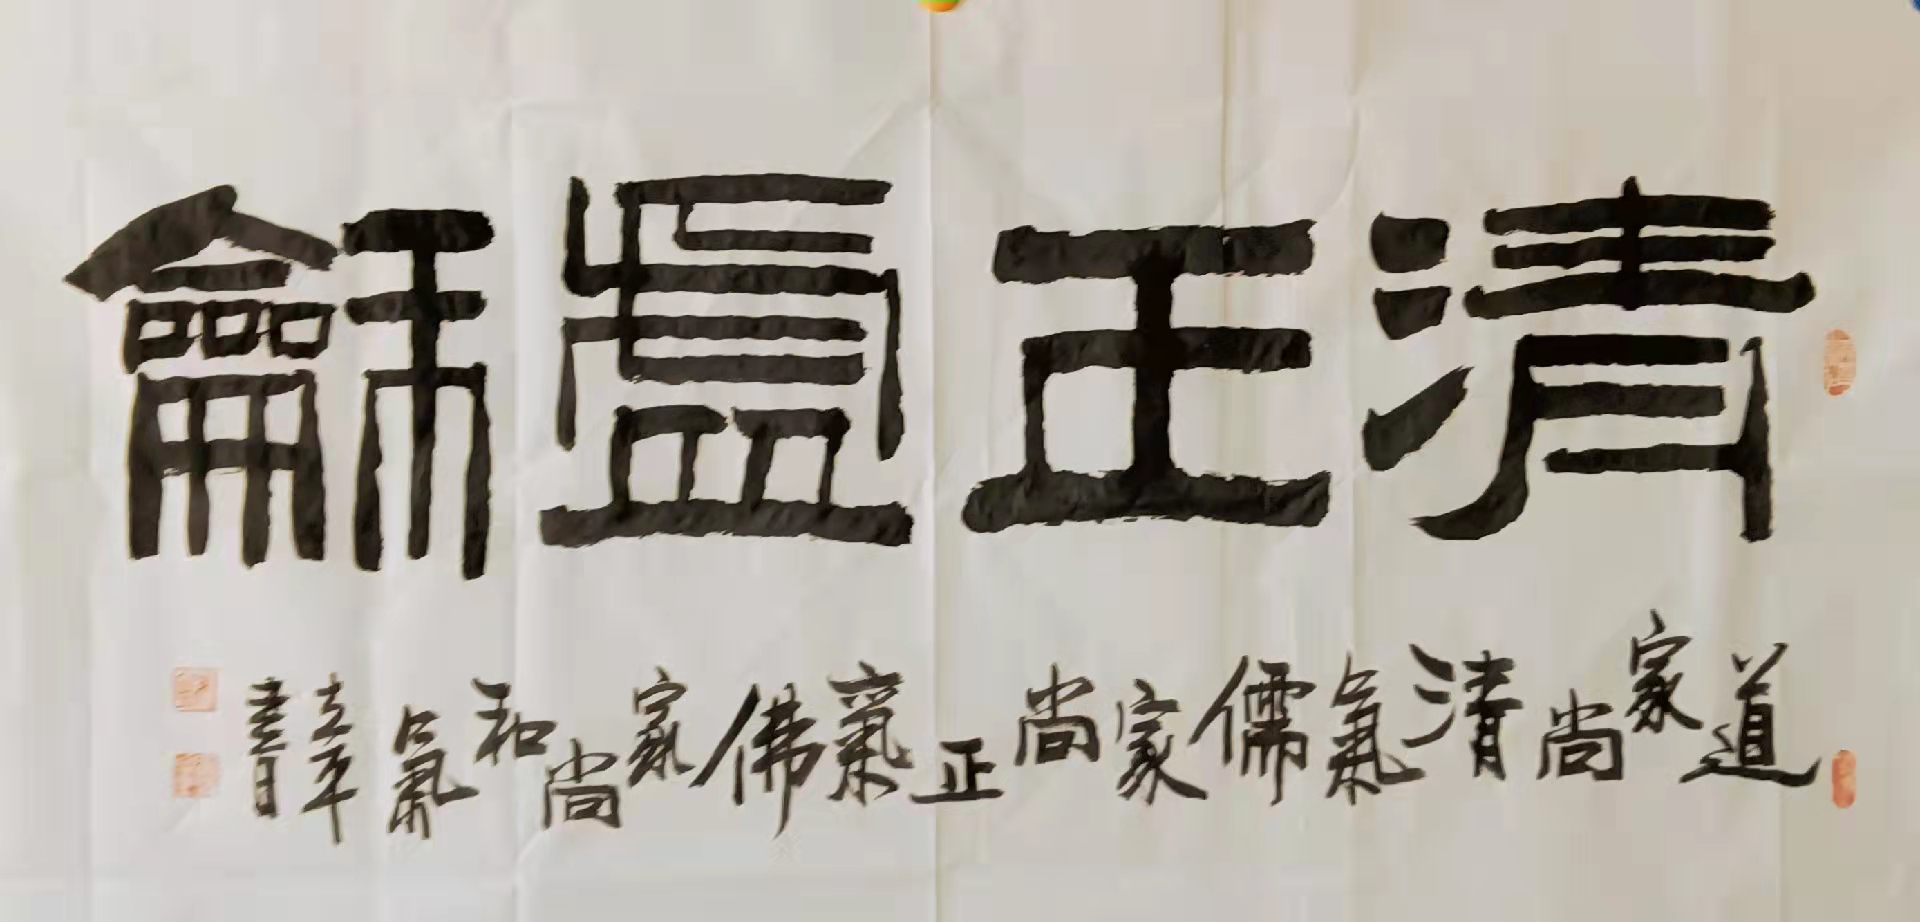 清正龢
道家尚清氣儒家尚正氣佛家尚和氣書